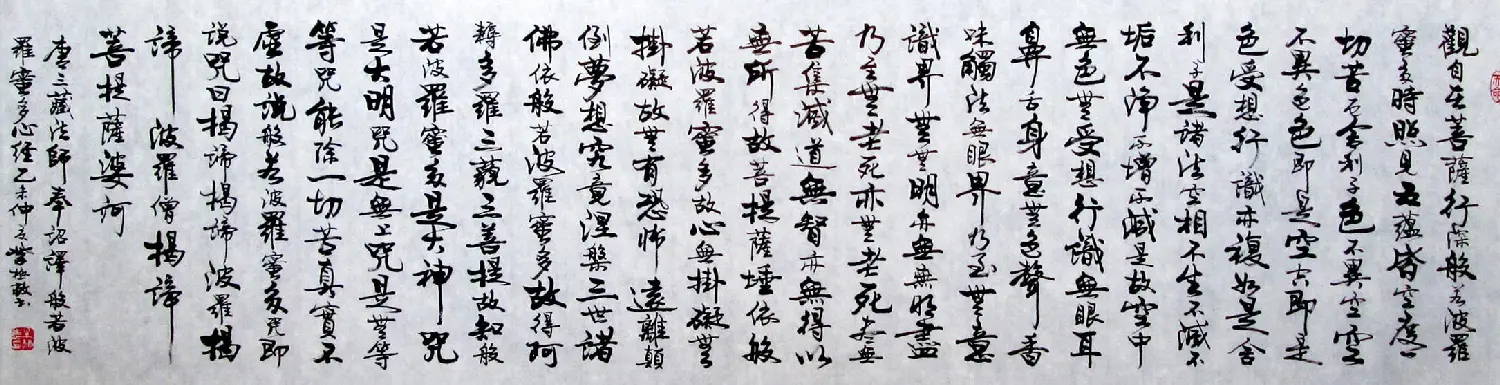 觀自在菩薩行深般若波羅
蜜多時照見五蘊皆空度一
切苦厄舍利子色不異空空
不異色色即是空空即是
色受想行識亦複如是舍
利子是諸法空相不生不滅不
垢不淨不增不減是故空中
無色無受想行識無眼耳
鼻舌身意無色聲香
味觸法無眼界乃至無意
識界無無明亦無無明盡
乃至無老死亦無老死盡無
苦集滅道無智亦無得以
無所得故菩提薩埵依般
若波羅蜜多故心無掛礙無
掛礙故無有恐怖遠離顛
倒夢想究竟涅槃三世諸
佛依般若波羅蜜多故得阿
耨多羅三藐三菩提故知般
若波羅蜜多是大神咒
是大明咒是無上咒是無等
等咒能除一切苦真實不
虛故說般若波羅蜜多咒即
說咒曰揭諦揭諦波羅揭
諦波羅僧揭諦
菩提薩婆訶
唐三藏法師奉詔譯般若波
羅蜜多心經乙未仲夏